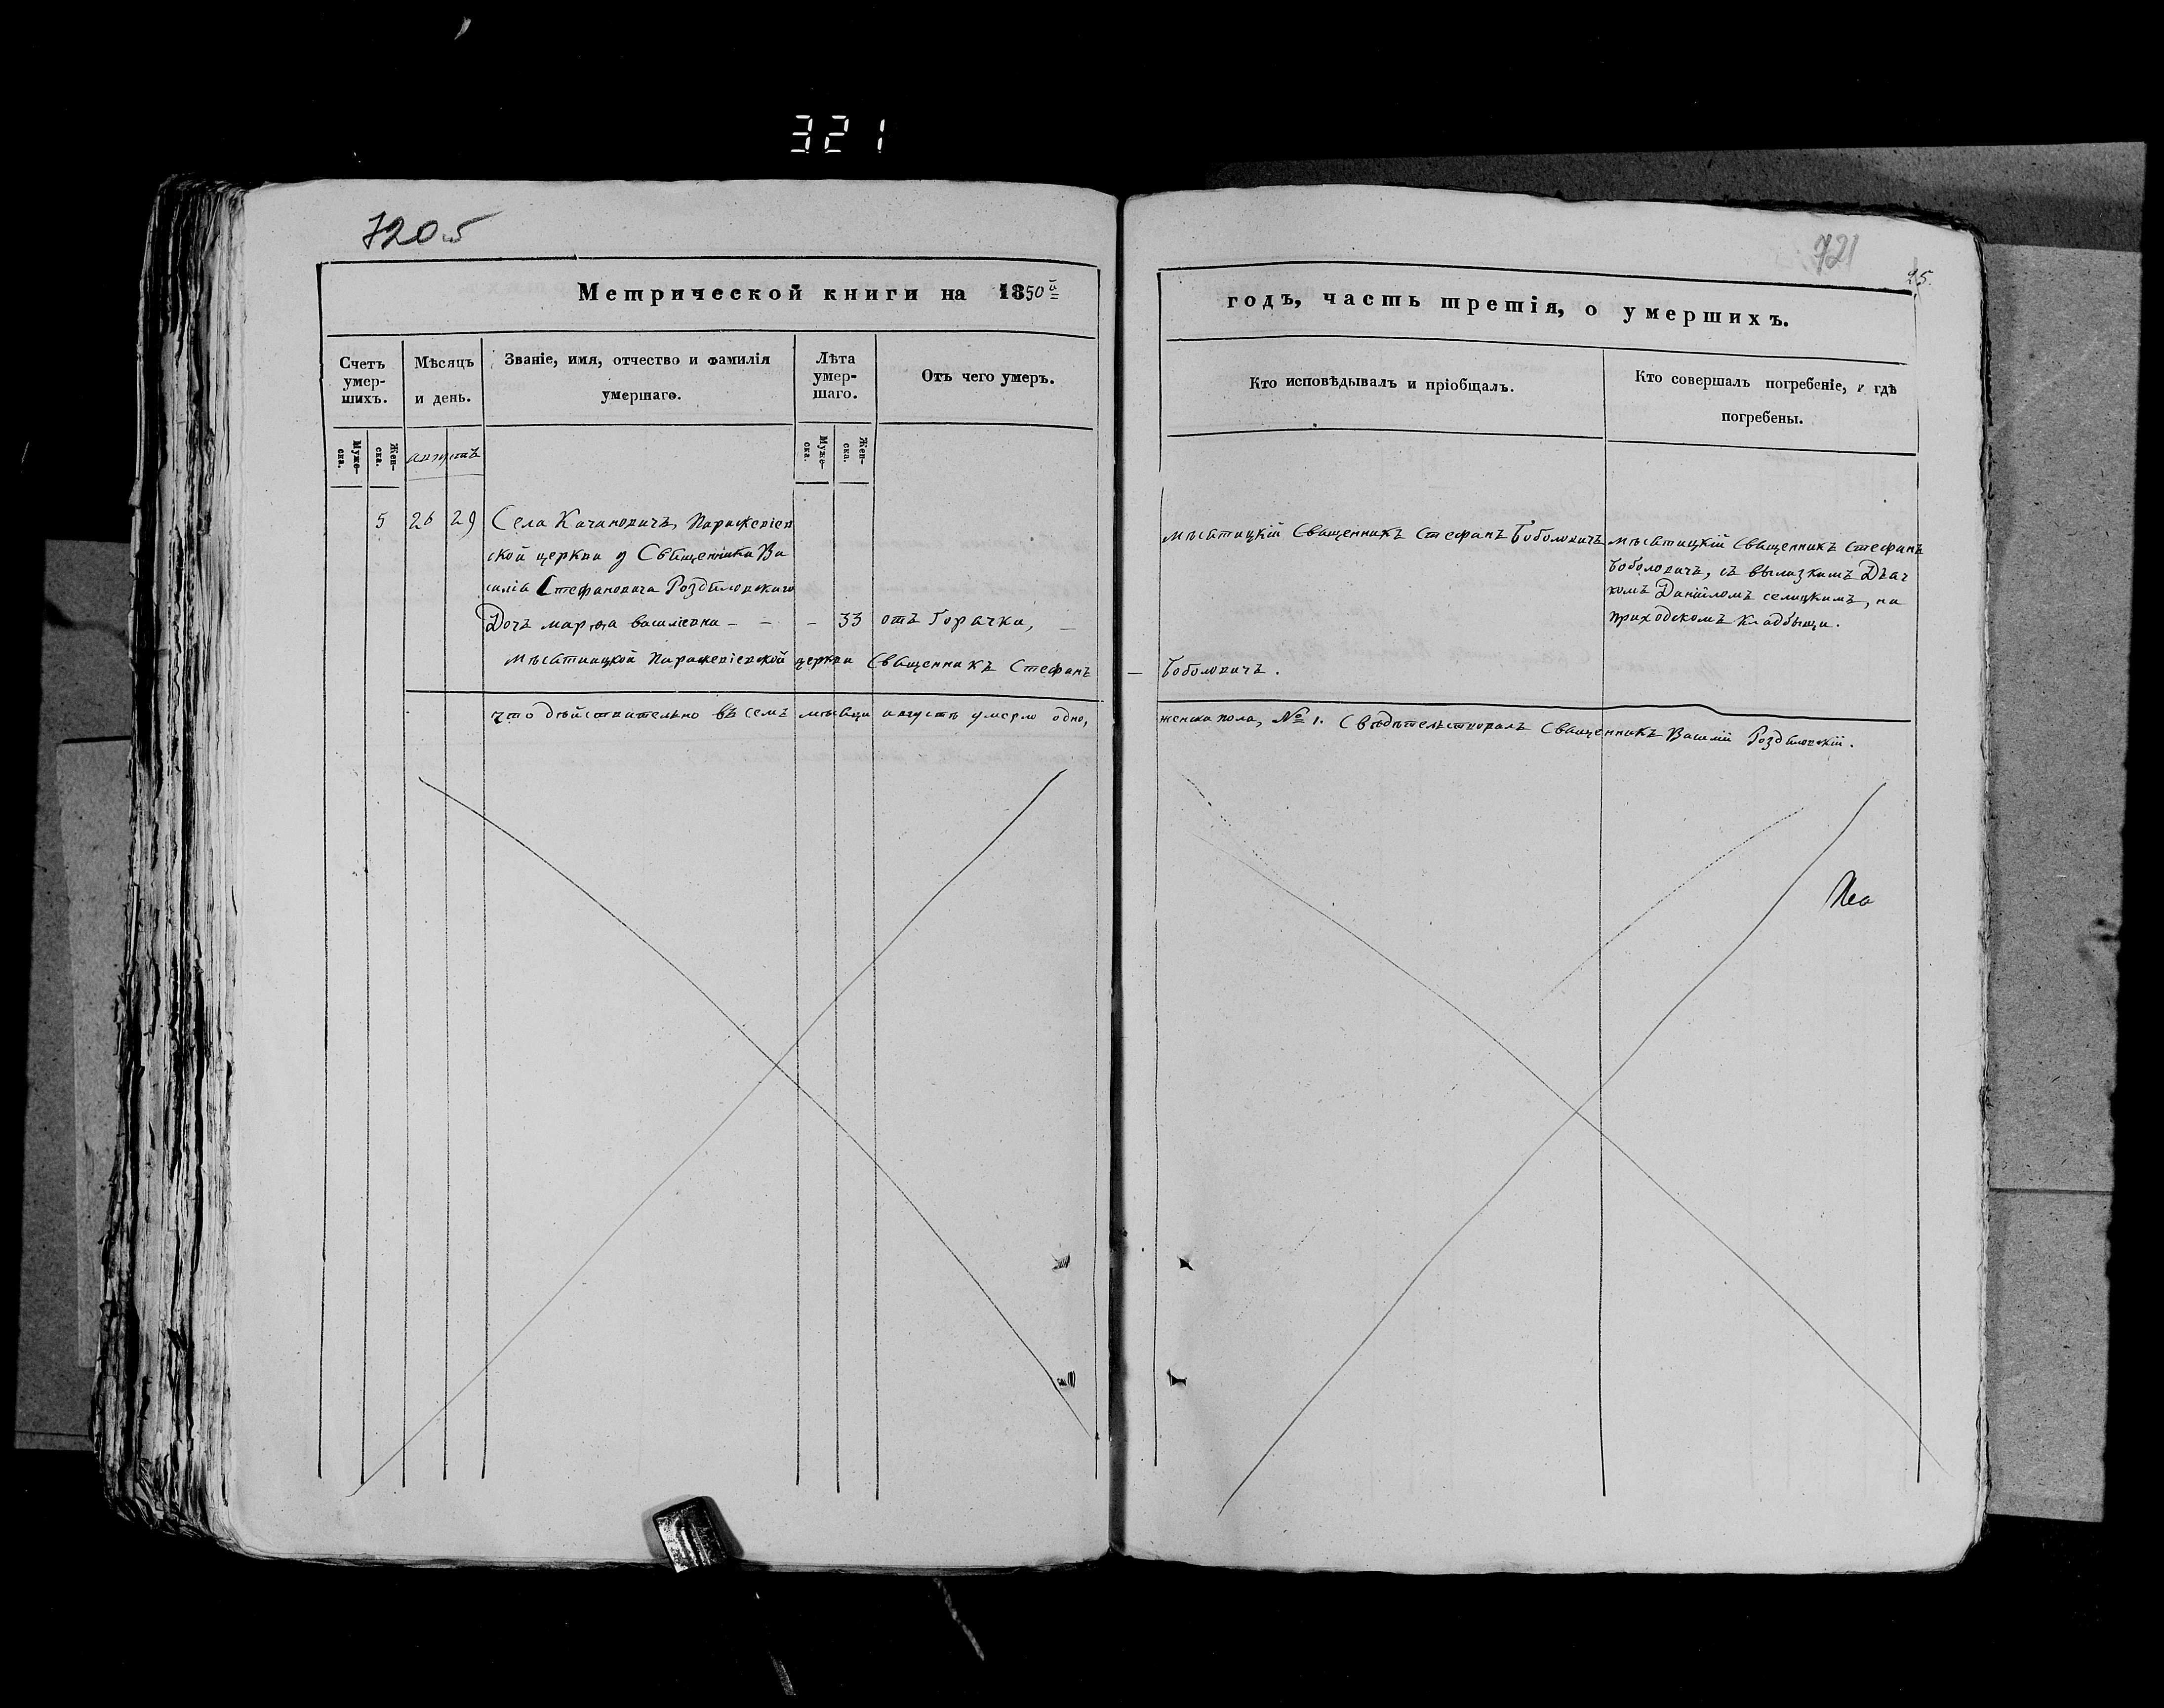 321
720 об
721
25.
Метрической книги на 1850й
годъ, часть третія, о умершихъ.
Счетъ умер-шихъ.
Мѣсяцъ и день.
Званіе, имя, отчество и фамилія умершаго.
Лѣта умер-шаго.
Отъ чего умеръ.
Кто исповѣдывалъ и пріобщалъ.
Кто совершалъ погребеніе, и гдѣ погребены.
Муже-ска.
Жен-ска.
августъ
Муже-ска.
Жен-ска.
5 26 29 Села Качановичъ, Параскевіев
ской церкви у Священника Ва
силія Стефановича Роздяловскаго
Дочь марѳа василіевна - - - 33 отъ Горячки, —
мѣстицкій Священникъ Стефанъ Боболовичъ
мѣстицкій Священникъ Стефанъ
Боболовичъ, съ Дьяч
комъ Даніиломъ селицкимъ, на
приходскомъ кладбыщи.
Параскевіевской церкви Священникъ Стефанъ — Боболовичъ.
что дѣйствительно въ семъ мѣсяци августѣ умерло одно, женска пола, № 1. Свѣдѣтельствовалъ Священникъ Василій Роздяловскій.